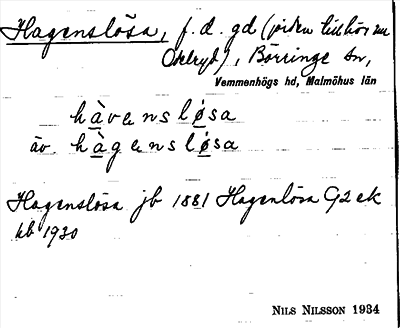 Hagenslösa, f. d. gd (jorden tillhör nu
Odelryd), Börringe sn,
Vemmenhögs hd, Malmöhus län
hàvenslø̀sa
äv. hàgenslø̀sa
Hagenslösa jb 1881 Hagenlösa G2 ek
kb 1930
NILS NILSSON 1934